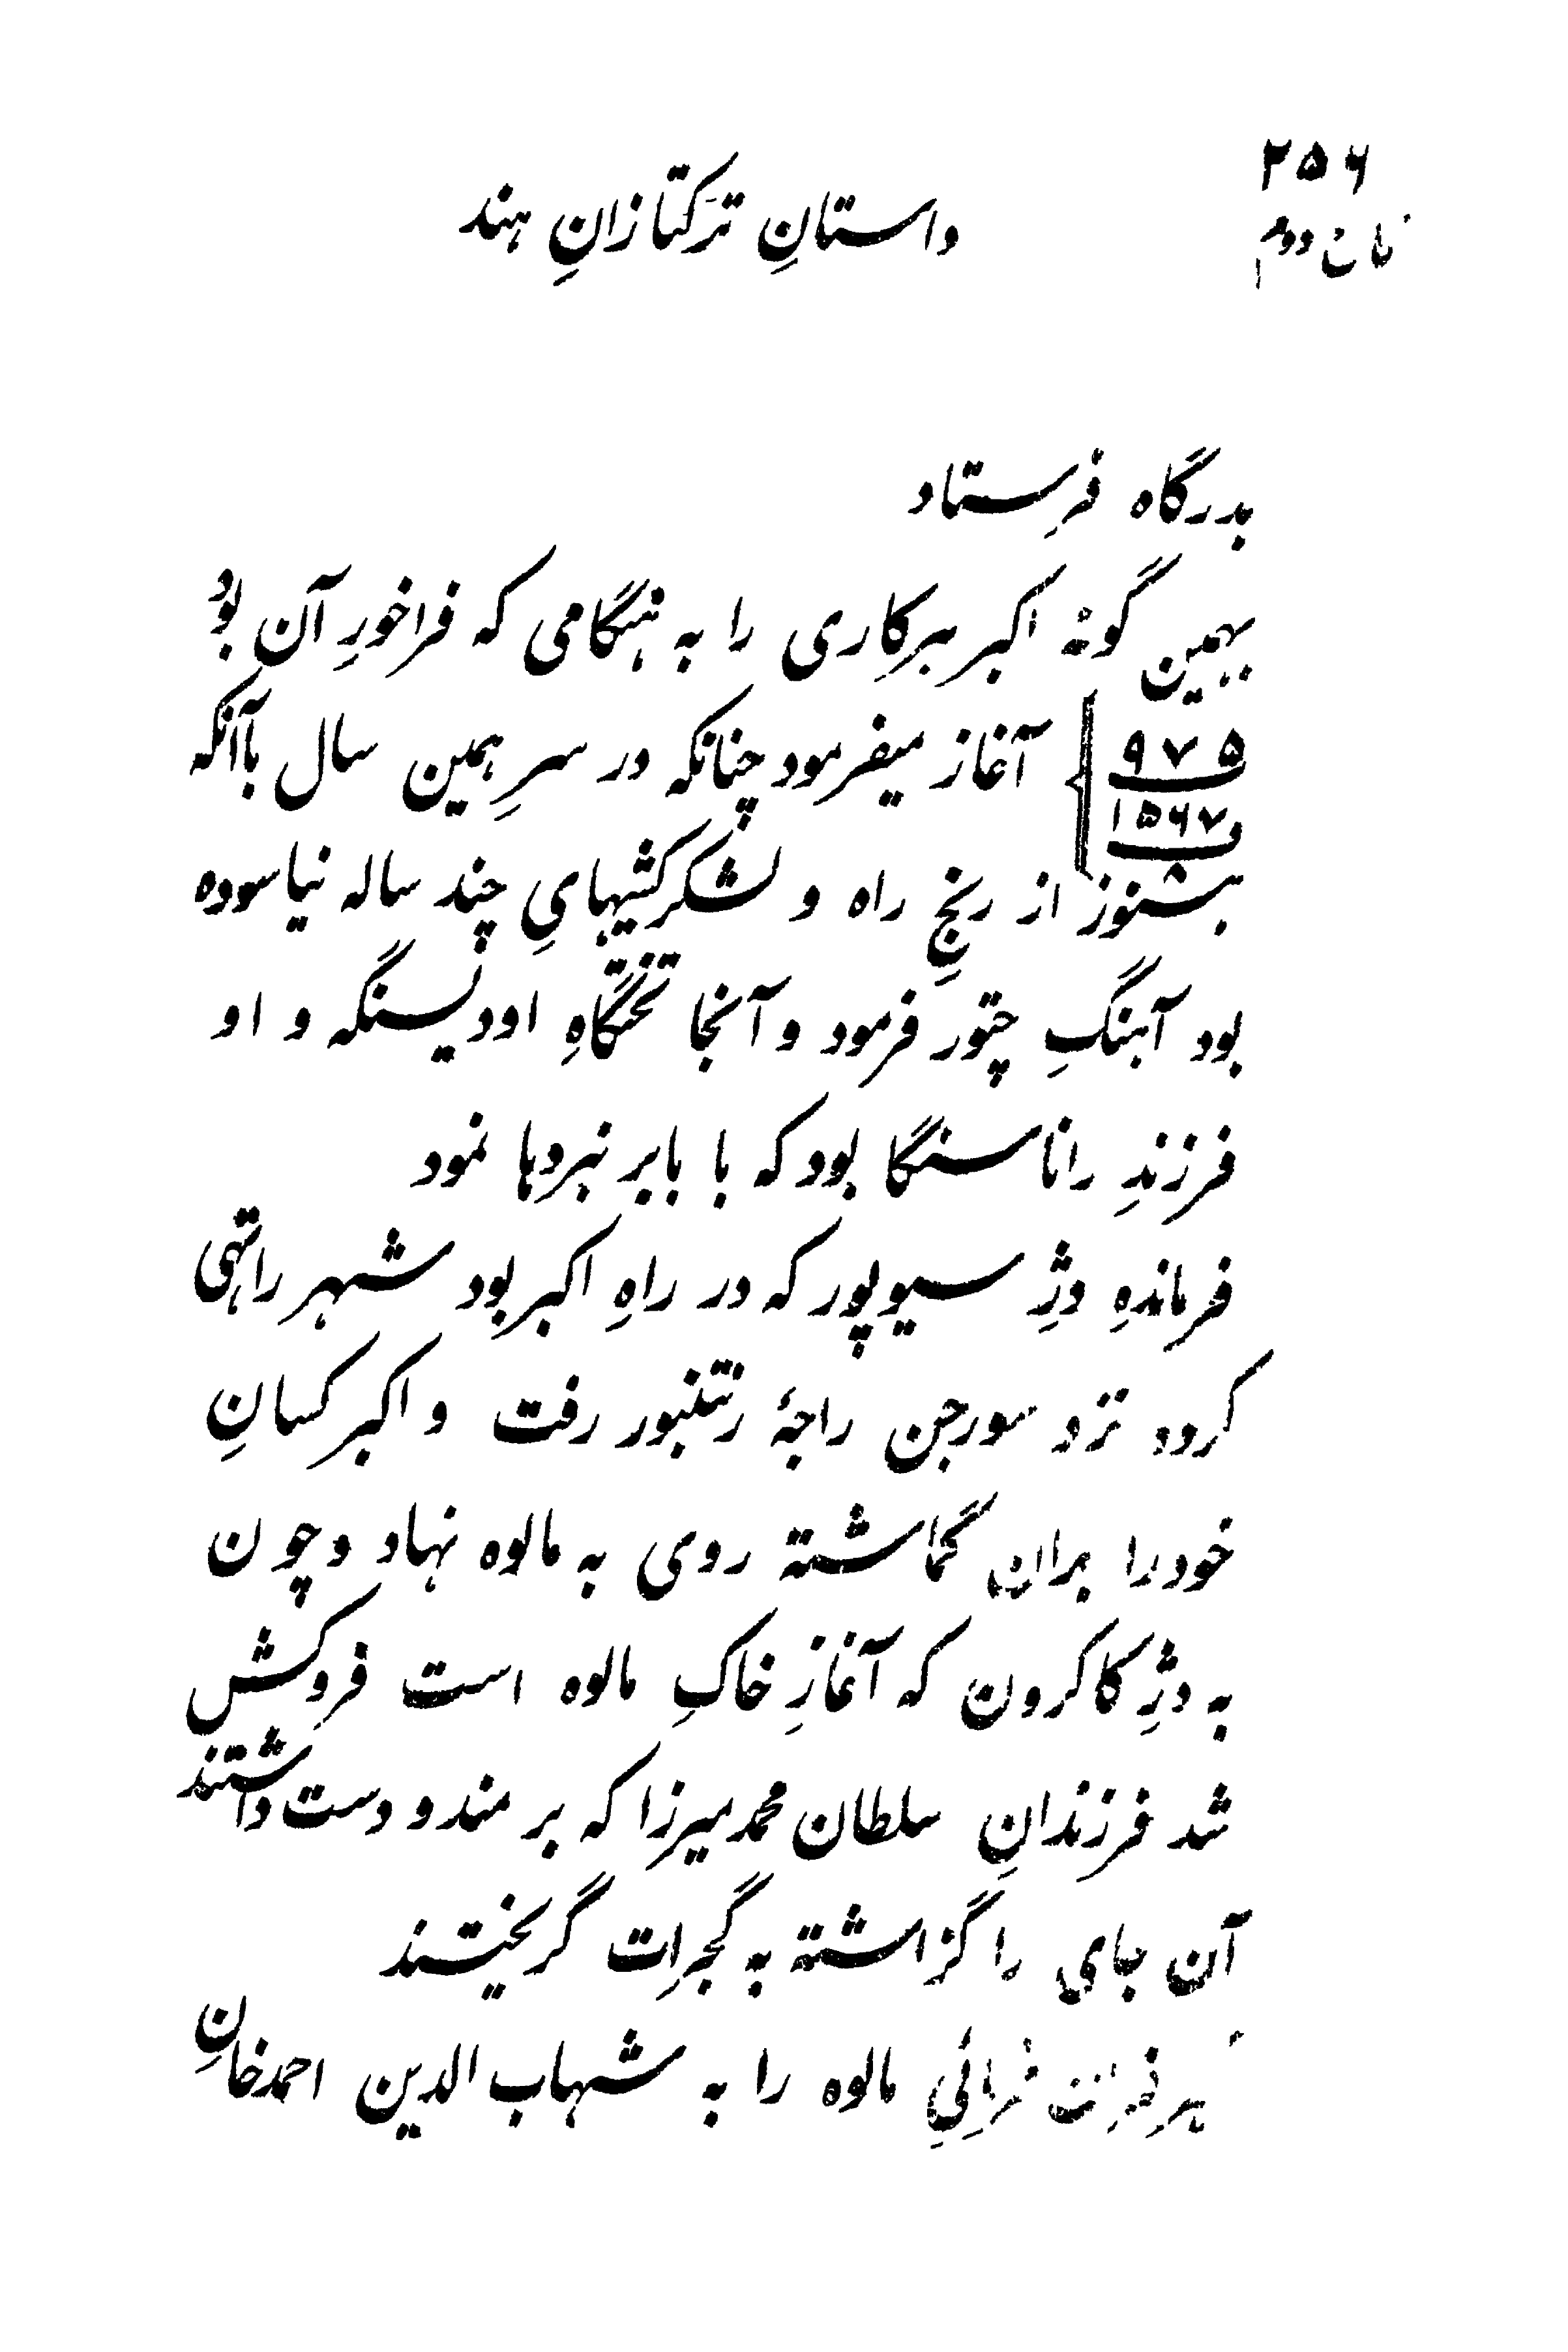 ۲۵۶
داستانِ ترکتازانِ هند
دوم
بدرگاه فرِستاد
بهمین گونهٔ اکبر هرکاری را به هنگامی که فراخورِ آن بود
۹۷۵ آغاز میفرمود چنانکه در سرِ همین سال باآنکه
۱۵۶۷
هنوز از رنجِ راه و لشکرکشیهایِ چند ساله نیاسوده
بود آهنگِ چتور فرمود و آنجا تختگاهِ اودیسنگه و او
فرزندِ راناسنگا بود که با بابر نبردها نمود
فرماندهِ دژِ سیوپور که در راهِ اکبر بود شهر را تهی
کرده نزد سورجن راجهٔ رنتنبور رفت و اکبر کسانِ
خود را بران گماشته روی به مالوه نهاد و چون
به دژِ کاکرون که آغازِ خاکِ مالوه است فروکش
شد فرزندانِ سلطان محمد میرزا که بر مندو دست داشتند
آن جای را گزاشته به گجرات گریختند
مالوه را به شهاب الدین احمدخانِ